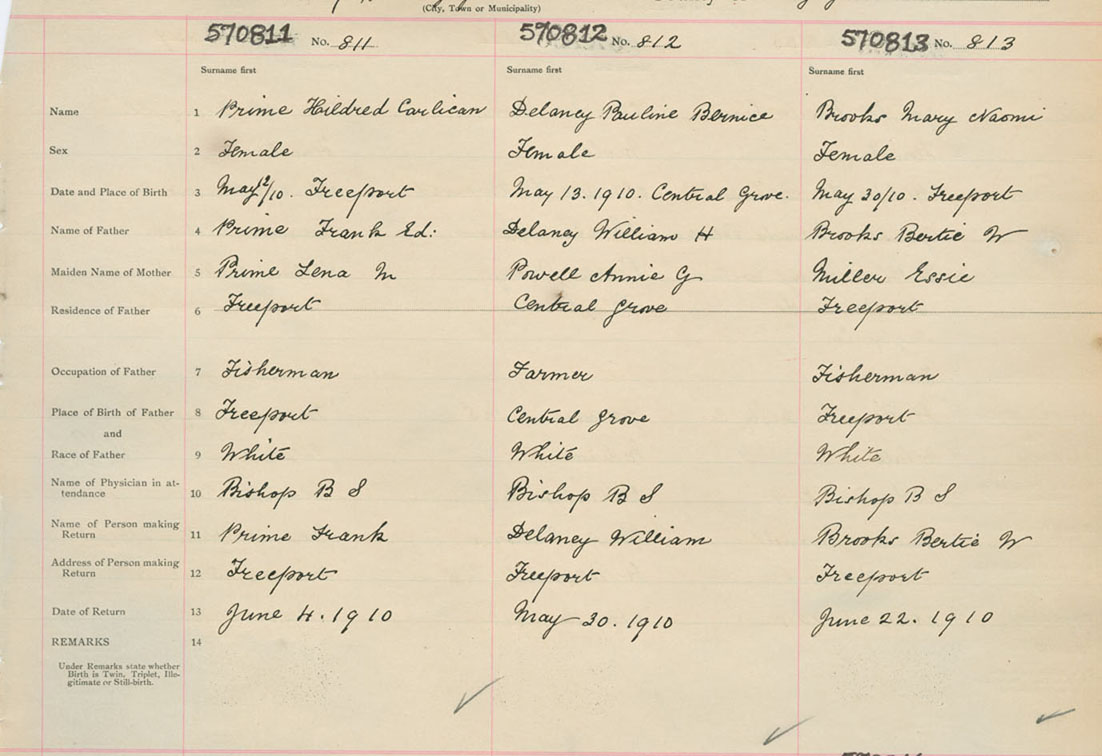 (City, Town or Municipality)
570811 No. 811 570812 No. 812 570813 No. 813
Surname first Surname first Surname first
Name 1 Prime Hildred Carlican Delaney Pauline Bernice Brooks Mary Naomi
Sex 2 Female Female Female
Date and Place of Birth 3 May 12/10. Freeport May 13. 1910. Central Grove. May 30/10. Freeport
Name of Father 4 Prime Frank Ed: Delaney William H Brooks Bertie W
Maiden Name of Mother 5 Prime Lena M Powell Annie G Miller Essie
Residence of Father 6 Freeport Central Grove Freeport
Occupation of Father 7 Fisherman Farmer Fisherman
Place of Birth of Father 8 Freeport Central Grove Freeport
and
Race of Father 9 White White White
Name of Physician in at-
tendance 10 Bishop B S Bishop B S Bishop B S
Name of Person making
Return 11 Prime Frank Delaney William Brooks Bertie W
Address of Person making
Return 12 Freeport Freeport Freeport
Date of Return 13 June 4. 1910 May 30. 1910 June 22. 1910
REMARKS 14
Under Remarks state whether
Birth is Twin. Triplet, Ille-
gitimate or Still-birth.